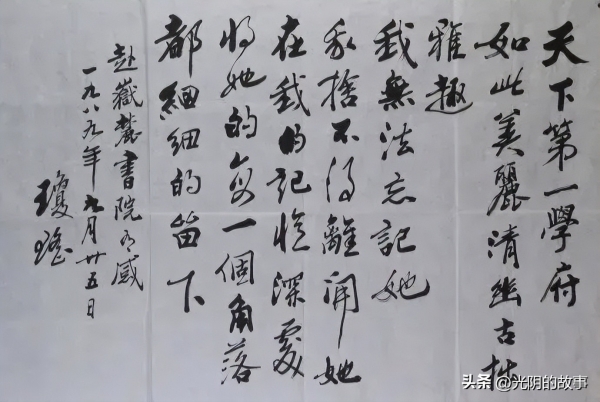 天下第一學府
如此美麗清幽古拙
雅趣
我無法忘記她
我捨不得離開她
在我的記憶深處
將她的每一個角落
都細細的留下
赴嶽麓書院有感
一九八九年九月廿五日
瓊瑤
头条 @光阴的故事